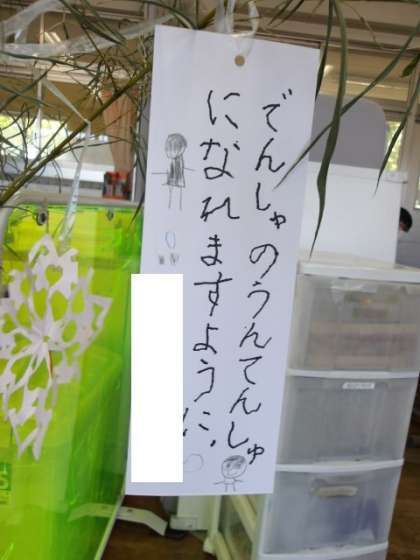 でんしゃのうんてんしゅ
になれますように。